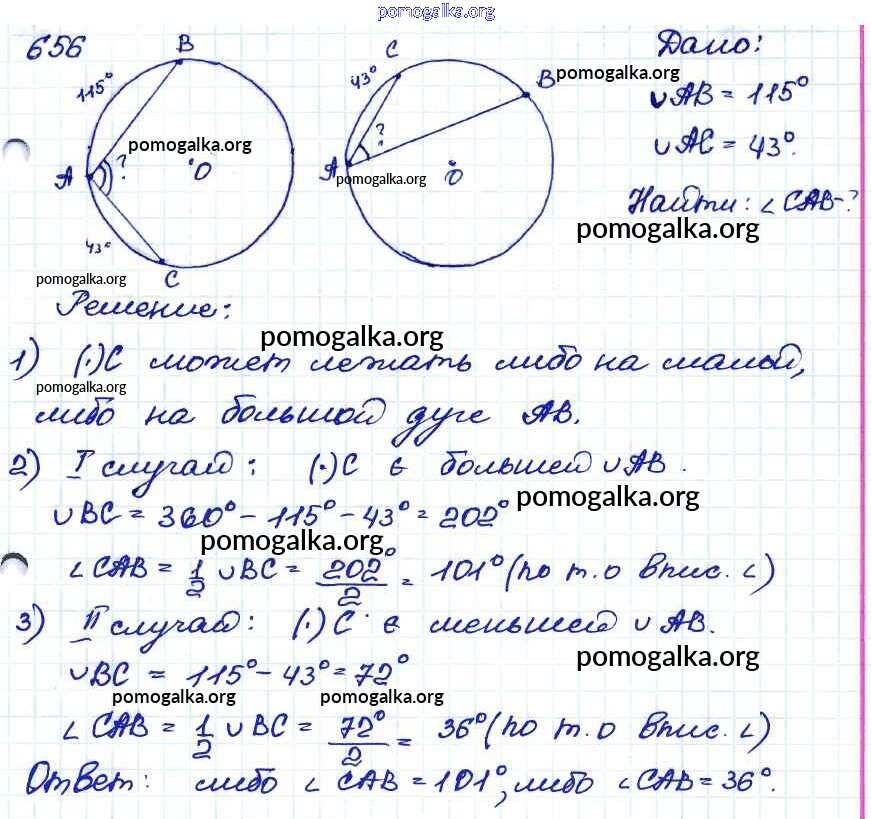 pomogalka.org
656
B
C
Дано:
115°
43°
B
pomogalka.org
∪AB = 115°
pomogalka.org
?
?
∪AC = 43°.
A
O
A
pomogalka.org
O
Найти: ∠CAB-?
pomogalka.org
43°
C
pomogalka.org
Решение:
pomogalka.org
1) (·)C может лежать либо на малой,
pomogalka.org
либо на большой дуге AB.
2) I случай: (·)C ∈ большей ∪AB.
pomogalka.org
∪BC = 360° - 115° - 43° = 202°
pomogalka.org
∠CAB = 1/2 ∪BC = 202°/2 = 101° (по т.о впис. ∠)
3) II случай: (·)C ∈ меньшей ∪AB.
pomogalka.org
∪BC = 115° - 43° = 72°
pomogalka.org pomogalka.org
∠CAB = 1/2 ∪BC = 72°/2 = 36° (по т.о впис. ∠)
Ответ: либо ∠CAB = 101°, либо ∠CAB = 36°.